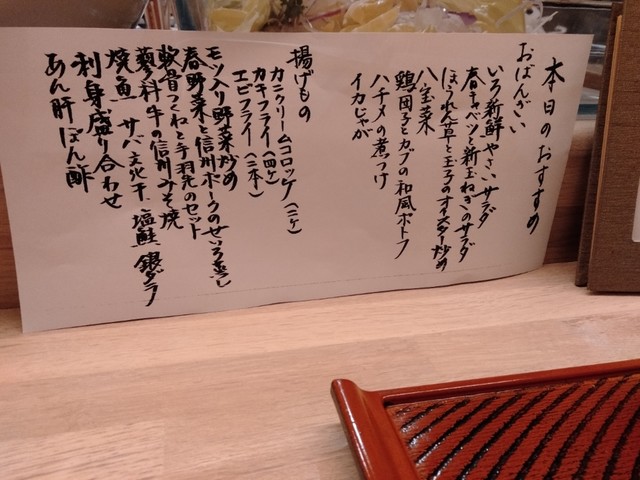 本日のおすすめ
おばんざい
いろ新鮮やさいサラダ
春キャベツと新玉ねぎのサラダ
ほうれん草と玉子のオイスター炒め
八宝菜
鶏団子とカブの和風ポトフ
ハチメの煮つけ
イカじゃが
揚げもの
カニクリームコロッケ(二ケ)
カキフライ(四ケ)
エビフライ(二本)
モツ入り野菜炒め
春野菜と信州ポークのせいろ蒸し
軟骨つくねと手羽先のセット
蓼科牛の信州みそ焼
焼魚 サバ文化干、塩鮭、銀ダラ
刺身盛り合わせ
あん肝ぽん酢